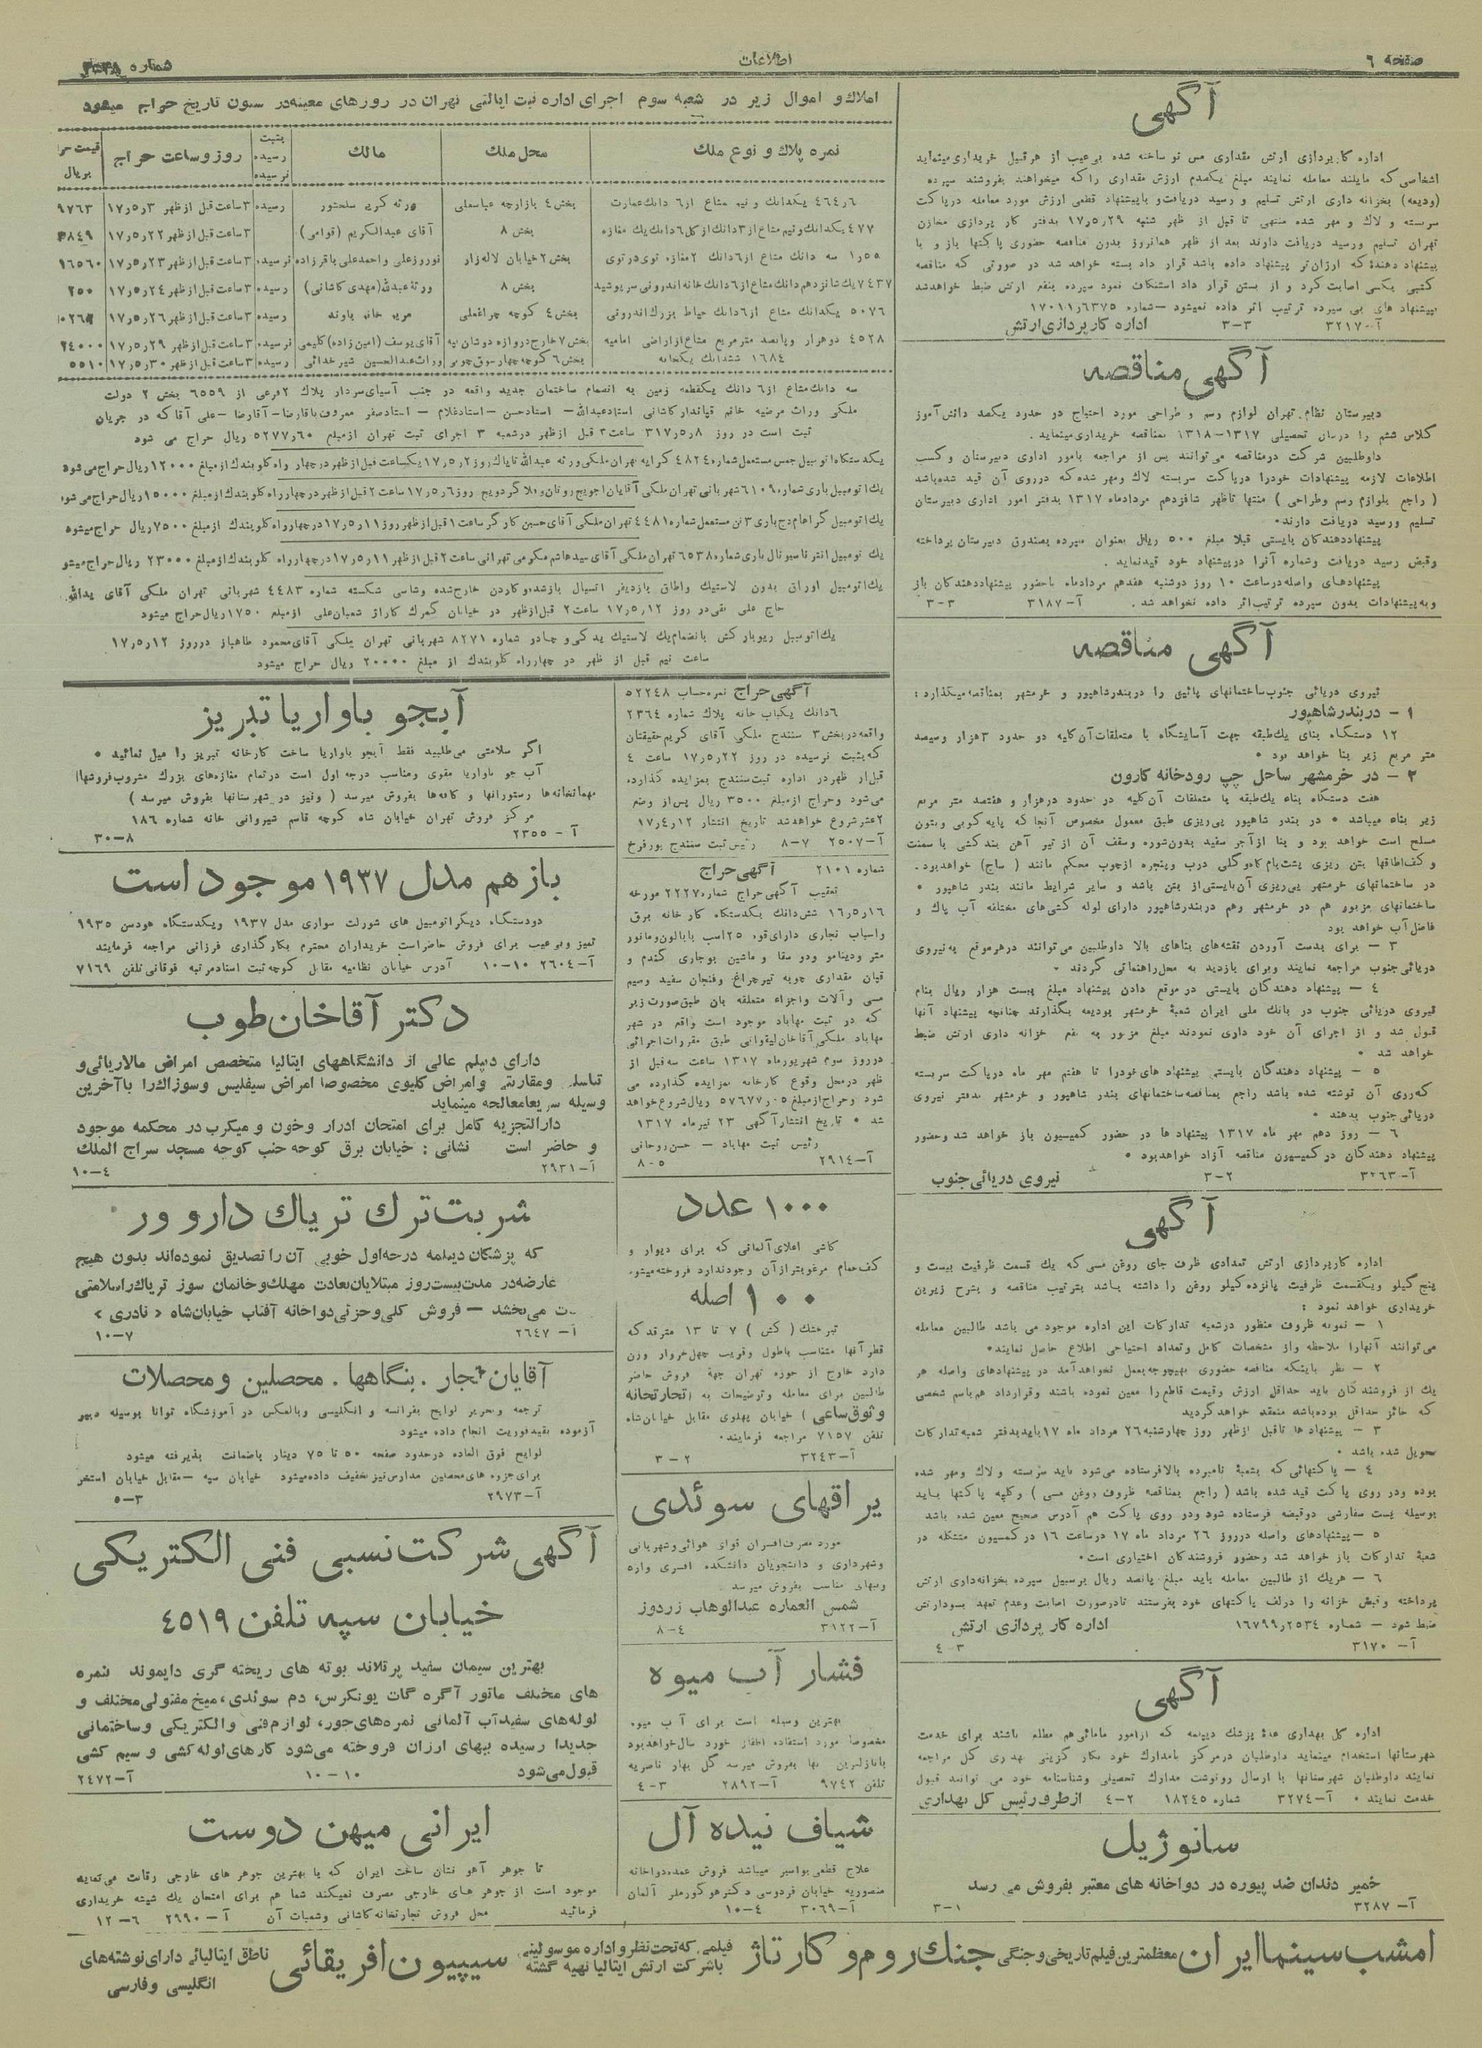 صفحه ٦
اطلاعات
شماره
آگهی
اداره کارپردازی ارتش مقداری مس نو ساخته شده بی‌عیب از هر قبیل خریداری مینماید
اشخاصی که مایلند معامله نمایند مبلغ یکصدم ارزش مقداری را که میخواهند بفروشند سپرده
(ودیعه) بخزانه داری ارتش تسلیم و رسید دریافت و با پیشنهاد قطعی ارزش مورد معامله در پاکت
سربسته و لاک و مهر شده منتهی تا قبل از ظهر شنبه ۱۷٫۵٫۲۹ بدفتر کار پردازی مخازن
تهران تسلیم و رسید دریافت دارند بعد از ظهر همانروز بدون مناقصه حضوری پاکتها باز و با
پیشنهاد دهندهٔ که ارزان‌تر پیشنهاد داده باشد قرار داد بسته خواهد شد در صورتی که مناقصه
کتبی بکسی اصابت کرد و از بستن قرار داد استنکاف نمود سپرده بنفع ارتش ضبط خواهد شد
پیشنهاد های بی سپرده ترتیب اثر داده نمیشود — شماره ۱۷۰۱۱٫۶۳۷۵
آ-۳۲۱۷ ۳-۳ اداره کارپردازی ارتش
آگهی مناقصه
دبیرستان نظام تهران لوازم رسم و طراحی مورد احتیاج در حدود یکصد دانش‌آموز
کلاس ششم را درسال تحصیلی ۱۳۱۷-۱۳۱۸ بمناقصه خریداری مینماید.
داوطلبین شرکت درمناقصه می‌توانند پس از مراجعه بامور اداری دبیرستان و کسب
اطلاعات لازمه پیشنهادات خودرا درپاکت سربسته لاک ومهر شده‌که درروی آن قید شده‌باشد
( راجع بلوازم رسم وطراحی ) منتها تاظهر شانزدهم مردادماه ۱۳۱۷ بدفتر امور اداری دبیرستان
تسلیم ورسید دریافت دارند.
پیشنهاددهندگان بایستی قبلا مبلغ ۵۰۰ ریال بعنوان سپرده بصندوق دبیرستان پرداخته
وقبض رسید دریافت وشماره آنرا درپیشنهاد خود قیدنمایند.
پیشنهادهای واصله درساعت ۱۰ روز دوشنبه هفدهم مردادماه باحضور پیشنهاددهندگان باز
وبه پیشنهادات بدون سپرده ترتیب‌اثر داده نخواهد شد. آ-۳۱۸۷ ۳-۳
آگهی مناقصه
نیروی دریائی جنوب ساختمانهای پائین را در بندرشاهپور و خرمشهر بمناقصه میگذارد:
۱ - دربندرشاهپور
۱۲ دستگاه بنای یک‌طبقه جهت آسایشگاه با متعلقات آن کلیه در حدود ۳هزار وسیصد
متر مربع زیر بنا خواهد بود .
۲ - در خرمشهر ساحل چپ رودخانه کارون
هفت دستگاه بناء یک‌طبقه با متعلقات آن کلیه در حدود دوهزار و هفتصد متر مربع
زیر بناء میباشد . در بندر شاهپور پی‌ریزی طبق معمول مخصوص آنجا که پایه کوبی وبتون
مسلح است خواهد بود و بنا از آجر سفید بدون شوره وسقف آن از تیر آهن بند کشی با سمنت
وکف‌اطاقها بتن ریزی پشت‌بام کاه‌وگلی درب وپنجره ازچوب محکم مانند ( ساج ) خواهدبود.
در ساختمانهای خرمشهر پی‌ریزی آن بایستی از بتن باشد و سایر شرایط مانند بندر شاهپور .
ساختمانهای مزبور هم در خرمشهر وهم دربندرشاهپور دارای لوله کشی‌های مختلفه آب پاک و
فاضل آب خواهد بود
۳ - برای بدست آوردن نقشه‌های بناهای بالا داوطلبین می‌توانند درهرموقع به نیروی
دریائی جنوب مراجعه نمایند وبرای بازدید به محل راهنمائی گردند .
۴ - پیشنهاد دهندگان بایستی در موقع دادن پیشنهاد مبلغ بیست هزار ریال بنام
نیروی دریائی جنوب در بانک ملی ایران شعبهٔ خرمشهر بودیعه بگذارند چنانچه پیشنهاد آنها
قبول شد و از اجرای آن خود داری نمودند مبلغ مزبور به نفع خزانه داری ارتش ضبط
خواهد شد .
۵ - پیشنهاد دهندگان بایستی پیشنهاد های خودرا تا هفتم مهر ماه درپاکت سربسته
که‌روی آن نوشته شده باشد راجع بمناقصه ساختمانهای بندر شاهپور و خرمشهر بدفتر نیروی
دریائی جنوب بدهند .
۶ - روز دهم مهر ماه ۱۳۱۷ پیشنهاد ها در حضور کمیسیون باز خواهد شد وحضور
پیشنهاد دهندگان در کمیسیون مناقصه آزاد خواهد بود .
آ-۳۲۶۳ ۲-۳ نیروی دریائی جنوب
آگهی
اداره کارپردازی ارتش تعدادی ظرف جای روغن مسی که یک قسمت ظرفیت بیست و
پنج کیلو ویکقسمت ظرفیت پانزده‌کیلو روغن را داشته باشد بترتیب مناقصه و بشرح زیرین
خریداری خواهد نمود :
۱ - نمونه ظروف منظور درشعبه تدارکات این اداره موجود می باشد طالبین معامله
می‌توانند آنهارا ملاحظه واز مشخصات کامل وتعداد احتیاجی اطلاع حاصل نمایند.
۲ - نظر باینکه مناقصه حضوری بهیچوجه بعمل نخواهد آمد در پیشنهادهای واصله هر
یک از فروشندگان باید حداقل ارزش وقیمت قاطع را معین نموده باشند وقرارداد هم باسم شخصی
که حائز حداقل بوده‌باشد منعقد خواهدگردید
۳ - پیشنهاد ها تاقبل ازظهر روز چهارشنبه ۲۶ مرداد ماه ۱۷ باید بدفتر شعبه تدارکات
تحویل شده باشد .
۴ - پاکتهائی که بشعبهٔ نامبرده بالا فرستاده می‌شود باید سربسته و لاک ومهر شده
بوده ودر روی پاکت قید شده باشد ( راجع بمناقصه ظروف روغن مسی ) وکلیه پاکتها باید
بوسیله پست سفارشی دوقبضه فرستاده شود ودر روی پاکت هم آدرس صحیح معین شده باشد
۵ - پیشنهادهای واصله درروز ۲۶ مرداد ماه ۱۷ درساعت ۱۶ در کمسیون متشکله در
شعبهٔ تدارکات باز خواهد شد وحضور فروشندگان اختیاری است.
۶ - هریک از طالبین معامله باید مبلغ پانصد ریال برسبیل سپرده بخزانه‌داری ارتش
پرداخته وقبض خزانه را درلف پاکتهای خود بفرستند تادرصورت اصابت وعدم تعهد بسود ارتش
ضبط شود — شماره ۱۶۷۹۹٫۲۵۳۴ اداره کار پردازی ارتش
آ- ۳۱۷۰ ۳-۴
آگهی
اداره کل بهداری عدهٔ پزشک دیپلمه که ازامور مامائی هم مطلع باشند برای خدمت
شهرستانها استخدام مینماید داوطلبان درمرکز بامدارک خود بکار گزینی بهداری کل مراجعه
نمایند داوطلبان شهرستانها با ارسال رونوشت مدارک تحصیلی وشناسنامه خود می توانند قبول
خدمت نمایند . آ-۳۲۷۴ شماره ۱۸۲۴۵ ۲-۴ ازطرف رئیس کل بهداری
سانوژیل
خمیر دندان ضد پیوره در دواخانه های معتبر بفروش می رسد
آ- ۳۲۸۷ ۱-۳
املاک و اموال زیر در شعبه سوم اجرای اداره ثبت ایالتی تهران در روزهای معینه در ستون تاریخ حراج میشود
نمره پلاک و نوع ملک | محل ملک | مالک | بثبت رسیده نرسیده | روز و ساعت حراج | قیمت حراج بریال
۴۶۴٫۶ یکدانک و نیم مشاع از۶ دانک عمارت | بخش ۴ بازارچه عباسعلی | ورثه کربه سلحشور | رسیده | ۳ ساعت قبل از ظهر ۱۷٫۵٫۳ | ۹۷۶۳
۴۷۷ یکدانک و نیم مشاع از۳ دانک از کل ۶ دانک یک مغازه | بخش ۸ | آقای عبدالکریم (قوامی) | ۳ ساعت قبل از ظهر ۱۷٫۵٫۲۲ | ۳۸۴۹
سه دانک مشاع از۶ دانک ۲ مغازه توی درتوی | بخش ۲ خیابان لاله‌زار | نوروزعلی و احمدعلی باقرزاده | نرسیده | ۳ ساعت قبل از ظهر ۱۷٫۵٫۲۳ | ۱۶۵۶۰
۷۴۳۷ یک شانزدهم دانک مشاع از۶ دانک خانه اندرونی سرپوشیده | بخش ۸ | ورثهٔ عبدالله (مهدی کاشانی) | رسیده | ۳ ساعت قبل از ظهر ۱۷٫۵٫۲۴ | ۲۵۰
۵۰۷۶ یکدانک مشاع از۶ دانک حیاط بزرگ اندرونی | بخش ۴ کوچه چراغعلی | مریم خانم پاوند | رسیده | ۳ ساعت قبل از ظهر ۱۷٫۵٫۲۶ | ۱۰۲۶۴
۴۵۲۸ دوهزار و پانصد متر مربع مشاع از اراضی امامیه | بخش ۷ خارج دروازه دوشان تپه | آقای یوسف (امین زاده) کلیمی | نرسیده | ۳ ساعت قبل از ظهر ۱۷٫۵٫۲۹ | ۲۴۰۰۰
۱۶۸۴ ششدانک یکخانه | بخش ۶ کوچه چهارسوق چوبی | وراث عبدالحسین شیر خدائی | رسیده | ۳ ساعت قبل از ظهر ۱۷٫۵٫۳۰ | ۵۵۱۰
سه دانک مشاع از۶ دانک یکقطعه زمین به انضمام ساختمان جدید واقعه در جنب آسیای سردار پلاک ۲فرعی از ۶۵۵۹ بخش ۲ دولت
ملکی وراث مرضیه خانم قپاندار کاشانی استادعبدالله — استادحسن — استادغلام — استادصفر معروف باقارضا — آقارضا — علی آقا که در جریان
ثبت است در روز ۳۱۷٫۵٫۸ ساعت ۳ قبل ازظهر درشعبه ۳ اجرای ثبت تهران ازمبلغ ۵۲۷۷٫۶۰ ریال حراج می شود
یکدستگاه اتومبیل جمس مستعمل شماره ۴۸۲۴ کرایه تهران ملکی ورثه عبدالله تاپاک روز ۱۷٫۵٫۲ یکساعت قبل ازظهر در چهار راه گلوبندک از مبلغ ۱۲۰۰۰ ریال حراج می شود
یک اتومبیل باری شماره ۶۱۰۹ شهربانی تهران ملکی آقایان اجویج روتان و ملاگردویچ روز ۱۷٫۵٫۶ ساعت ۲ قبل ازظهر در چهار راه گلوبندک از مبلغ ۱۵۰۰۰ ریال حراج می شود
یک اتومبیل گراهام دج باری ۳ تن مستعمل شماره ۴۴۸۱ تهران ملکی آقای حسین کارگر ساعت ۱ قبل از ظهر روز ۱۷٫۵٫۱۱ در چهار راه گلوبندک ازمبلغ ۷۵۰۰ ریال حراج میشود
یک اتومبیل انترناسیونال باری شماره ۶۵۳۸ تهران ملکی آقای سیدهاشم مکرمی تهرانی ساعت ۲ قبل از ظهر ۱۷٫۵٫۱۱ در چهار راه گلوبندک از مبلغ ۲۳۰۰۰ ریال حراج میشود
یک اتومبیل اوراق بدون لاستیک واطاق بازدیفر اتسیال بازشده وکاردن خارج شده وشاسی شکسته شماره ۴۴۸۳ شهربانی تهران ملکی آقای یدالله
حاج علی نقی در روز ۱۷٫۵٫۱۲ ساعت ۲ قبل ازظهر در خیابان گمرک گاراژ شعبان‌علی ازمبلغ ۱۷۵۰ ریال حراج میشود
یک اتومبیل ریو بارکش بانضمام یک لاستیک یدکی وچادر شماره ۸۲۷۱ شهربانی تهران ملکی آقای محمود طاهباز درروز ۱۷٫۵٫۱۲
ساعت نیم قبل از ظهر در چهار راه گلوبندک از مبلغ ۲۰۰۰۰ ریال حراج میشود
آگهی حراج نمره حساب ۵۲۲۴۸
۶ دانک یکباب خانه پلاک شماره ۲۳۶۴
واقعه در بخش ۳ سنندج ملکی آقای کریم حقیقتیان
که بثبت نرسیده در روز ۱۷٫۵٫۲۲ ساعت ۴
قبل از ظهر در اداره ثبت سنندج بمزایده گذارده
می‌شود وحراج ازمبلغ ۳۵۰۰ ریال پس از وضع
۲عشر شروع خواهدشد تاریخ انتشار ۱۷٫۴٫۱۲
آ-۲۵۰۷ ۷-۸ رئیس ثبت سنندج پورفرخ
شماره ۲۱۰۱ آگهی حراج
تعقیب آگهی حراج شماره ۲۲۲۷ مورخه
۱۶٫۵٫۱۶ شش دانک یکدستگاه کارخانه برق
واسباب نجاری دارای قوه ۲۵ اسب
متر ودینامو ودو سقا و ماشین بوجاری گندم و
قپان مقداری چوبه تیرچراغ وفنجان سفید وسیم
مسی وآلات واجزاء متعلقه بان طبق صورت زیر
که در ثبت مهاباد موجود است واقع در شهر
مهاباد ملکی آقاخان لیقوانی طبق مقررات اجرائی
درروز سوم شهریورماه ۱۳۱۷ ساعت سه قبل از
ظهر درمحل وقوع کارخانه بمزایده گذارده می
شود وحراج از مبلغ ۵۷۶۷۷٫۰۵ ریال شروع خواهد
شد . تاریخ انتشار آگهی ۲۳ تیرماه ۱۳۱۷
رئیس ثبت مهاباد — حسن روحانی
آ-۲۹۱۴ ۵-۸
۱۰۰۰ عدد
کاشی اعلای آلمانی که برای دیوار و
کف حمام مرغوبتر از آن وجود ندارد فروخته میشود.
۱۰۰ اصله
تیر خشک ( کش ) ۷ تا ۱۳ متر قد که
قطر آنها متناسب باطول وقریب چهل خروار وزن
دارد خارج از حوزه تهران جهة فروش حاضر
طالبین برای معامله وتوضیحات به (تجارتخانه
وثوق‌ساعی) خیابان پهلوی مقابل خیابان شاه
تلفن ۷۱۵۷ مراجعه فرمایند.
آ-۳۲۴۳ ۲-۳
یراقهای سوئدی
مورد مصرف افسران قوای هوائی وشهربانی
وشهرداری و دانشجویان دانشکده افسری وارد
وببهای مناسب بفروش میرسد
شمس العماره عبدالوهاب زردوز
آ-۳۱۲۲ ۴-۸
فشار آب میوه
بهترین وسیله است برای آب میوه
مخصوصا مورد استفاده اطفال خورد سال خواهد بود
بانازلترین بها بفروش میرسد گل بهار ناصریه
تلفن ۹۷۴۲ آ-۲۸۹۲ ۳-۴
شیاف نیده آل
علاج قطعی بواسیر میباشد فروش عمده دواخانه
منصوریه خیابان فردوسی دکتر هوگورملر آلمان
آ-۳۰۶۹ ۴-۱۰
آبجو باواریا تبریز
اگر سلامتی می‌طلبید فقط آبجو باواریا ساخت کارخانه تبریز را میل نمائید .
آب جو باواریا مقوی ومناسب درجه اول است درتمام مغازه‌های بزرگ مشروب فروشها
مهمانخانه‌ها رستورانها و کافه‌ها بفروش میرسد ( ونیز در شهرستانها بفروش میرسد )
مرکز فروش تهران خیابان شاه کوچه قاسم شیروانی خانه شماره ۱۸۶
آ - ۲۳۵۵ ۸-۳۰
بازهم مدل ۱۹۳۷ موجود است
دودستگاه دیگر اتومبیل های شورلت سواری مدل ۱۹۳۷ ویکدستگاه هودسن ۱۹۳۵
تمیز وبی‌عیب برای فروش حاضر است خریداران محترم بکارگذاری فرزانی مراجعه فرمایند
آ-۲۶۰۴ ۱۰-۱۰ آدرس خیابان نظامیه مقابل کوچه ثبت اسناد مرتبه فوقانی تلفن ۷۱۶۹
دکتر آقاخان طوب
دارای دیپلم عالی از دانشگاههای ایتالیا متخصص امراض مالاریائی و
تناسلی ومقاربتی وامراض کلیوی مخصوصا امراض سیفلیس وسوزاک را با آخرین
وسیله سریعا معالجه مینماید
دارالتجزیه کامل برای امتحان ادرار وخون و میکرب در محکمه موجود
و حاضر است نشانی : خیابان برق کوچه جنب کوچه مسجد سراج الملک
آ-۲۹۳۱ ۴-۱۰
شربت ترک تریاک داروور
که پزشکان دیپلمه درجه اول خوبی آن را تصدیق نموده‌اند بدون هیچ
عارضه در مدت بیست روز مبتلایان بعادت مهلک وخانمان سوز تریاک را سلامتی
می‌بخشد — فروش کلی وجزئی دواخانه آفتاب خیابان شاه < نادری >
آ- ۲۶۴۷ ۷-۱۰
آقایان تجار . بنگاهها . محصلین ومحصلات
ترجمه وتحریر لوایح بفرانسه و انگلیسی وبالعکس در آموزشگاه توانا بوسیله دبیر
آزموده بقیدفوریت انجام داده میشود
لوایح فوق العاده درحدود صفحه ۵۰ تا ۷۵ دینار باضمانت پذیرفته میشود
برای جزوه های محصلین مدارس نیز تخفیف داده میشود خیابان سپه - مقابل خیابان استخر
آ-۲۹۷۳ ۳-۵
آگهی شرکت نسبی فنی الکتریکی
خیابان سپه تلفن ۴۵۱۹
بهترین سیمان سفید پرتلاند بوته های ریخته گری دایموند نمره
های مختلف ماتور آگره گات یونکرس، دم سوئدی، میخ مفتولی مختلف و
لوله‌های سفیدآب آلمانی نمره‌های جور، لوازم فنی والکتریکی وساختمانی
جدیدا رسیده ببهای ارزان فروخته می‌شود کارهای لوله کشی و سیم کشی
قبول می‌شود ۱۰-۱۰ آ-۲۴۷۲
ایرانی میهن دوست
تا جوهر آهو نشان ساخت ایران که با بهترین جوهر های خارجی رقابت می‌نماید
موجود است از جوهر های خارجی مصرف نمیکند شما هم برای امتحان یک شیشه خریداری
فرمائید محل فروش تجارتخانه کاشانی وشعبات آن آ-۲۶۹۰ ۶-۱۲
امشب سینما ایران معظمترین فیلم تاریخی و جنگی جنگ روم و کارتاژ فیلمی که تحت نظر و اداره موسولینی باشرکت ارتش ایتالیا تهیه گشته سیپیون افریقائی ناطق ایتالیائی دارای نوشته‌های انگلیسی وفارسی